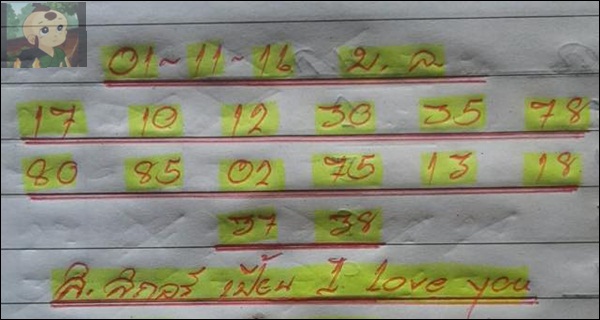 01-11-16 ข.ล.
17 10 12 30 35 78
80 85 02 75 13 18
37 38
สิ. สิกอร์ เปี้ย I Love you